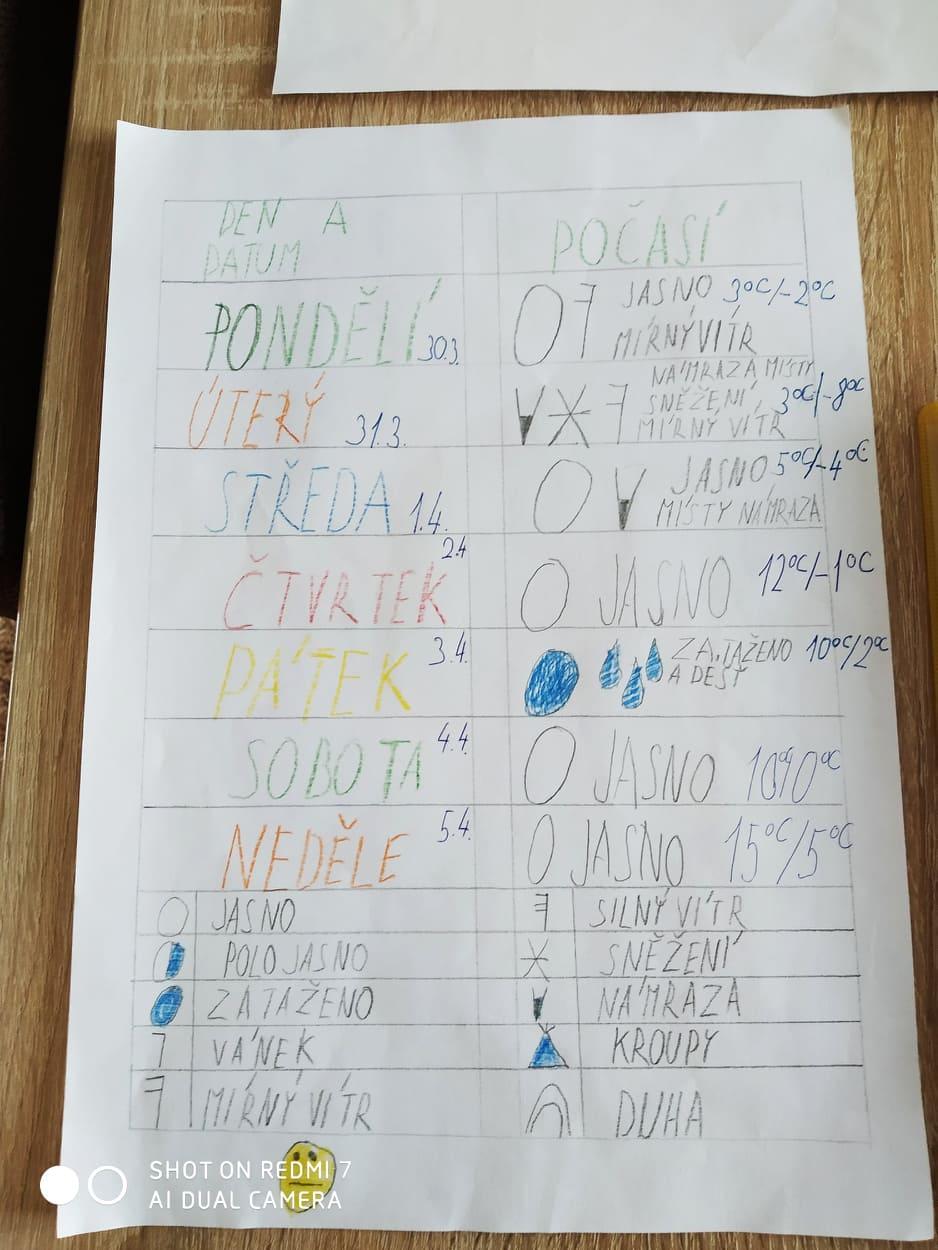 DEN A
DATUM
POČASÍ
PONDĚLÍ 30.3.
JASNO 3°C/-2°C
MÍRNÝ VÍTR
ÚTERÝ 31.3.
NÁMRAZA MÍSTY
SNĚŽENÍ 3°C/-8°C
MÍRNÝ VÍTR
STŘEDA 1.4.
JASNO 5°C/-4°C
MÍSTY NÁMRAZA
ČTVRTEK 2.4
JASNO 12°C/-1°C
PÁTEK 3.4.
ZATAŽENO 10°C/2°C
A DEŠŤ
SOBOTA 4.4.
JASNO
NEDĚLE 5.4.
JASNO 15°C/5°C
JASNO
SILNÝ VÍTR
POLOJASNO
SNĚŽENÍ
ZATAŽENO
NÁMRAZA
VÁNEK
KROUPY
MÍRNÝ VÍTR
DUHA
SHOT ON REDMI 7
AI DUAL CAMERA